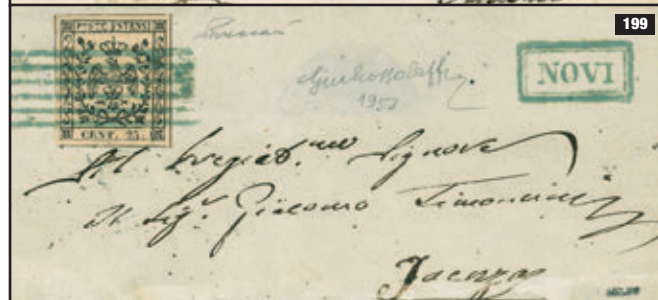 199
POSTE ESTENSI
CENT. 25:
Giulio Bolaffi
1953
NOVI
Al Pregiat.mo Signore
Il Sig.r Giacomo Simoncini